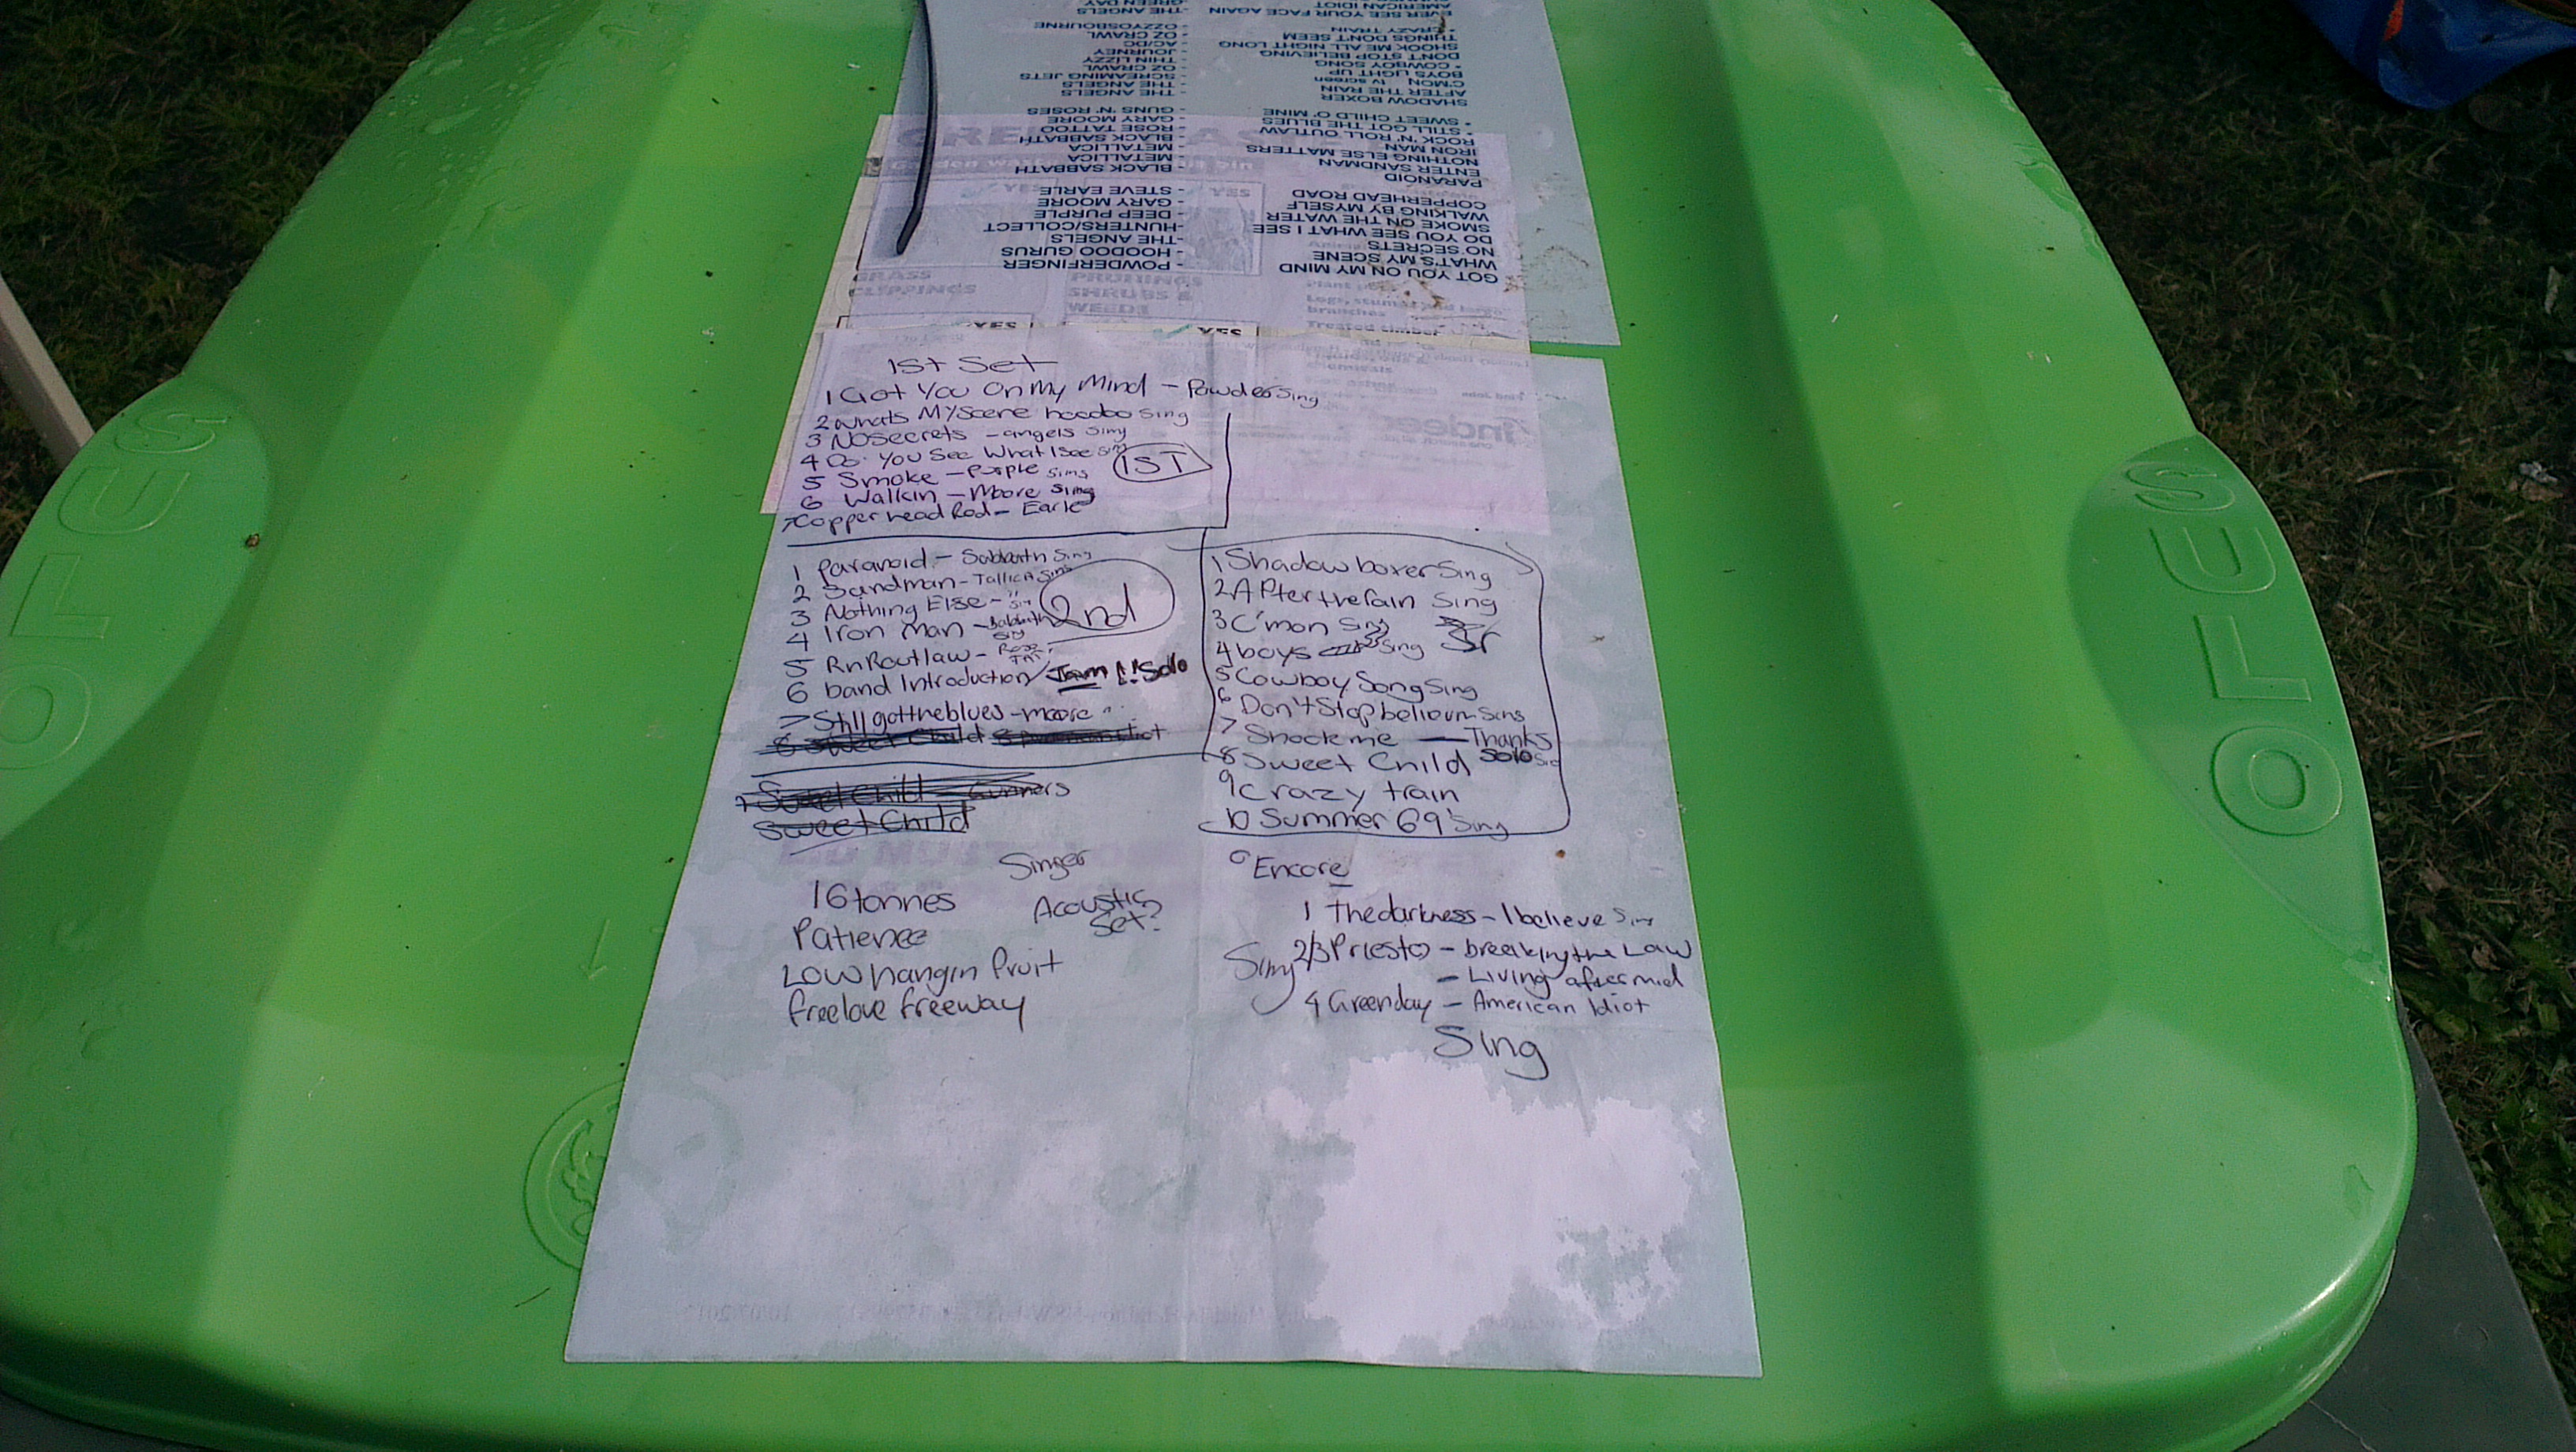 GREEN DAY
- THE ANGELS
AMERICAN IDIOT
EVER SEE YOUR FACE AGAIN
- OZZYOSBOURNE
- OZ CRAWL
- AC/DC
- JOURNEY
- THIN LIZZY
- OZ CRAWL
- SCREAMING JETS
- THE ANGELS
- THE ANGELS
* CRAZY TRAIN
THINGS DON'T SEEM
SHOOK ME ALL NIGHT LONG
DON'T STOP BELIEVING
* COWBOY SONG
BOYS LIGHT UP
C'MON tv screen
AFTER THE RAIN
SHADOW BOXER
- GUNS 'N' ROSES
- GARY MOORE
- ROSE TATTOO
- BLACK SABBATH
- METALLICA
- METALLICA
- BLACK SABBATH
* SWEET CHILD O' MINE
* STILL GOT THE BLUES
ROCK 'N' ROLL OUTLAW
IRON MAN
NOTHING ELSE MATTERS
ENTER SANDMAN
PARANOID
- STEVE EARLE
- GARY MOORE
- DEEP PURPLE
-HUNTERS/COLLECT
-THE ANGELS
- HOODOO GURUS
- POWDERFINGER
COPPERHEAD ROAD
WALKING BY MYSELF
SMOKE ON THE WATER
DO YOU SEE WHAT I SEE
NO SECRETS
WHAT'S MY SCENE
GOT YOU ON MY MIND
YES
YES
GRASS
CLIPPINGS
PRUNINGS
SHRUBS &
WEEDS
Logs, stumps and large
branches
Treated timber
YES
YES
1st Set
1 Got You On My Mind - Powder Sing
2 Whats My Scene hoodoo Sing
3 No Secrets - angels Sing
4 Do You See What I See Sing
5 Smoke - Purple Sing
6 Walkin - Moore Sing
7 Copper head Rod - Earle
1ST
1 Paranoid - Sabbath Sing
2 Sandman - Tallica Sing
3 Nothing Else - " Sin
4 Iron Man - Sabbath Sing
5 RnR outlaw - Rose Tat
6 band Introduction / Jam !! Solo
7 Still got the blues - Moore "
8 Sweet Child
2nd
7 Sweet Child - Gunners
Sweet Child
1 Shadow boxer Sing
2 After the rain Sing
3 C'mon Sing
4 boys Sing
5 Cowboy Song Sing
6 Don't Stop believin Sing
7 Shook me — Thanks
8 Sweet Child Solo
9 Crazy train
10 Summer 69' Sing
Singer
16 tonnes
Acoustic
Set?
Patience
Low hangin fruit
freelove freeway
Encore
1 The darkness - I believe Sing
Sing 2/3 Priest - breaking the Law
- Living after mid
4 Greenday - American Idiot
Sing
OFES
OFES